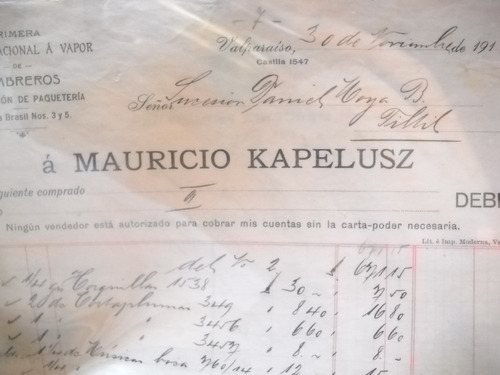 - 7 -
RIMERA
ACIONAL Á VAPOR
DE
MBREROS
ÓN DE PAQUETERÍA
Brasil Nos. 3 y 5.
Valparaíso, 30 de Noviembre de 191
Casilla 1547
Señor Sucesión Daniel Moya B.
Tiltil
á MAURICIO KAPELUSZ
guiente comprado
DEBE
Ningún vendedor está autorizado para cobrar mis cuentas sin la carta-poder necesaria.
Lit. é Imp. Moderna, Va
del No 2 $ 671 15
1/4 Horquillas 1538 $ 30 - 7 50
2 de Cortaplumas 349 " 8 40 16 80
" 1 " " 3456 " 6 60 6 60
" 1 " " 3457 " 8 - 8 -
boca 760/14 " 12 15